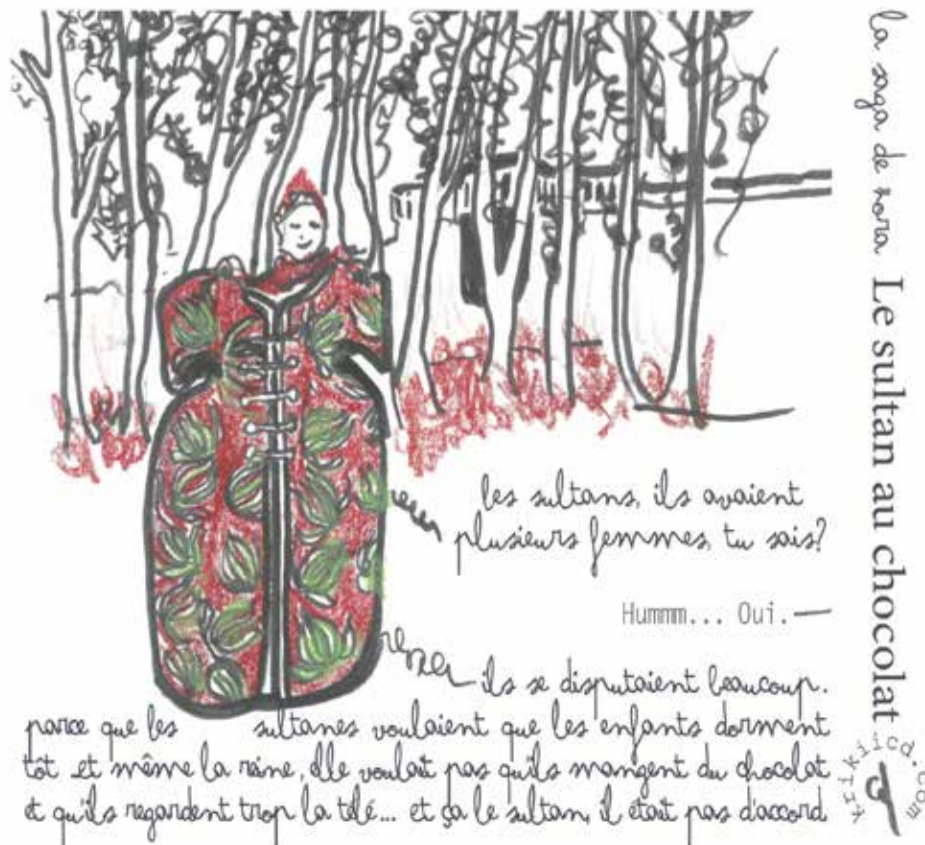 la saga de nora Le sultan au chocolat
les sultans, ils avaient
plusieurs femmes, tu sais?
Hummm... Oui.
ils se disputaient beaucoup.
parce que les sultanes voulaient que les enfants dorment
tôt et même la reine, elle voulait pas qu'ils mangent du chocolat
et qu'ils regardent trop la télé... et ça le sultan, il était pas d'accord
krikiicd.com